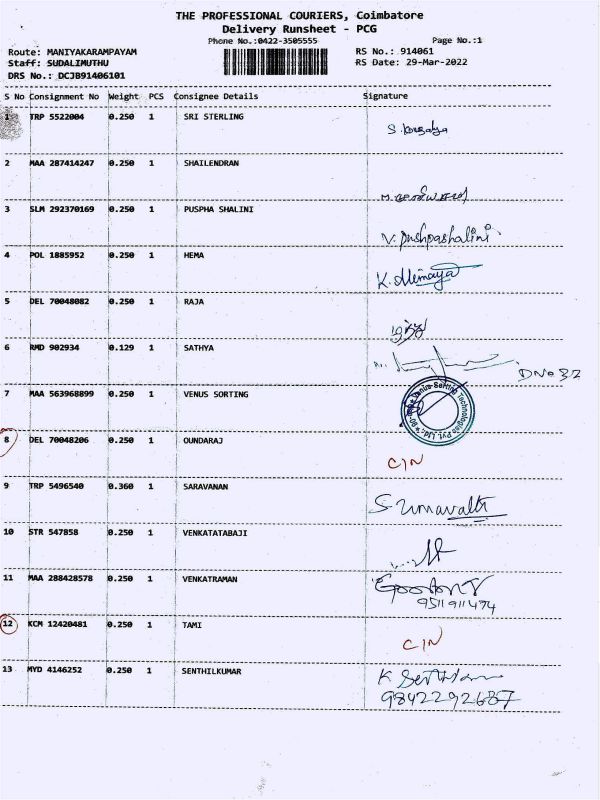 THE PROFESSIONAL COURIERS, Coimbatore
Delivery Runsheet - PCG
Phone No.:0422-3505555 Page No.:1
Route: MANIYAKARAMPAYAM RS No.: 914061
Staff: SUDALIMUTHU RS Date: 29-Mar-2022
DRS No.: DCJB91406101
S No Consignment No Weight PCS Consignee Details Signature
1 TRP 5522004 0.250 1 SRI STERLING
2 MAA 287414247 0.250 1 SHAILENDRAN
3 SLM 292370169 0.250 1 PUSPHA SHALINI
V. pushpashalini
4 POL 1885952 0.250 1 HEMA
5 DEL 70048082 0.250 1 RAJA
6 RMD 902934 0.129 1 SATHYA
DNo 32
7 MAA 563968899 0.250 1 VENUS SORTING
Venus Sorting Technologies Pvt. Ltd.
8 DEL 70048206 0.250 1 OUNDARAJ
CIN
9 TRP 5496540 0.360 1 SARAVANAN
10 STR 547858 0.250 1 VENKATATABAJI
11 MAA 288428578 0.250 1 VENKATRAMAN
9511911474
12 KCM 12420481 0.250 1 TAMI
CIN
13 MYD 4146252 0.250 1 SENTHILKUMAR
9842292687